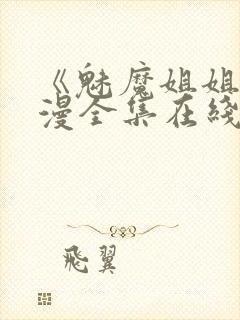 《魅魔姐姐
漫全集在綫
飛翼